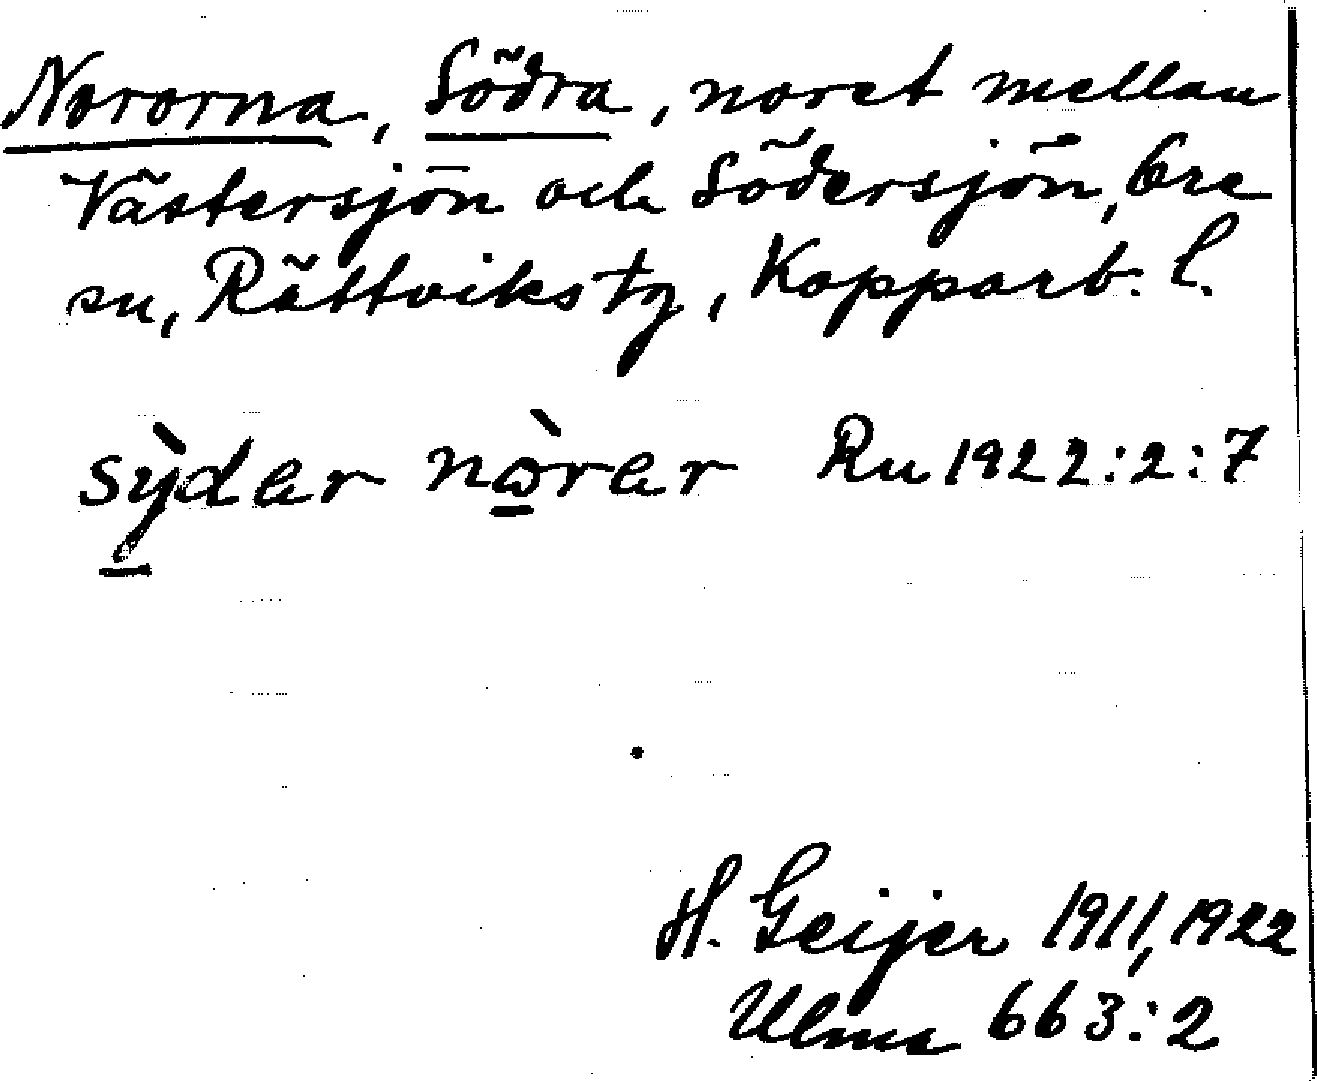 Nororna, Södra, noret mellan
Västersjön och Södersjön, Ore
sn, Rättviks tg, Kopparb. l.
sỳder nòrer Ru 1922:2:7
H. Geijer 1911, 1922
Ulma 663:2